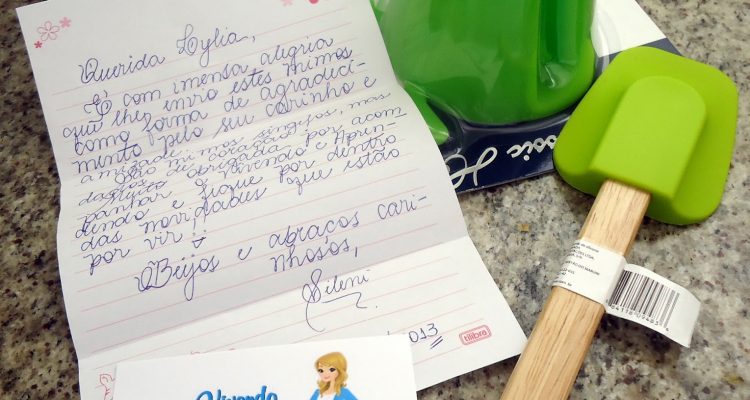 Querida Sylia,
É com imensa alegria
que lhes envio estes mimos
como forma de agradeci-
mento pelo seu carinho e
amizade. São mimos singelos, mas
de coração.
obrigada por acom-
panhar o Vivendo e Apren-
dendo e fique por dentro
das novidades que estão
por vir!
Beijos e abraços cari-
nhosos,
Seleni
013
tilibra
Vivendo